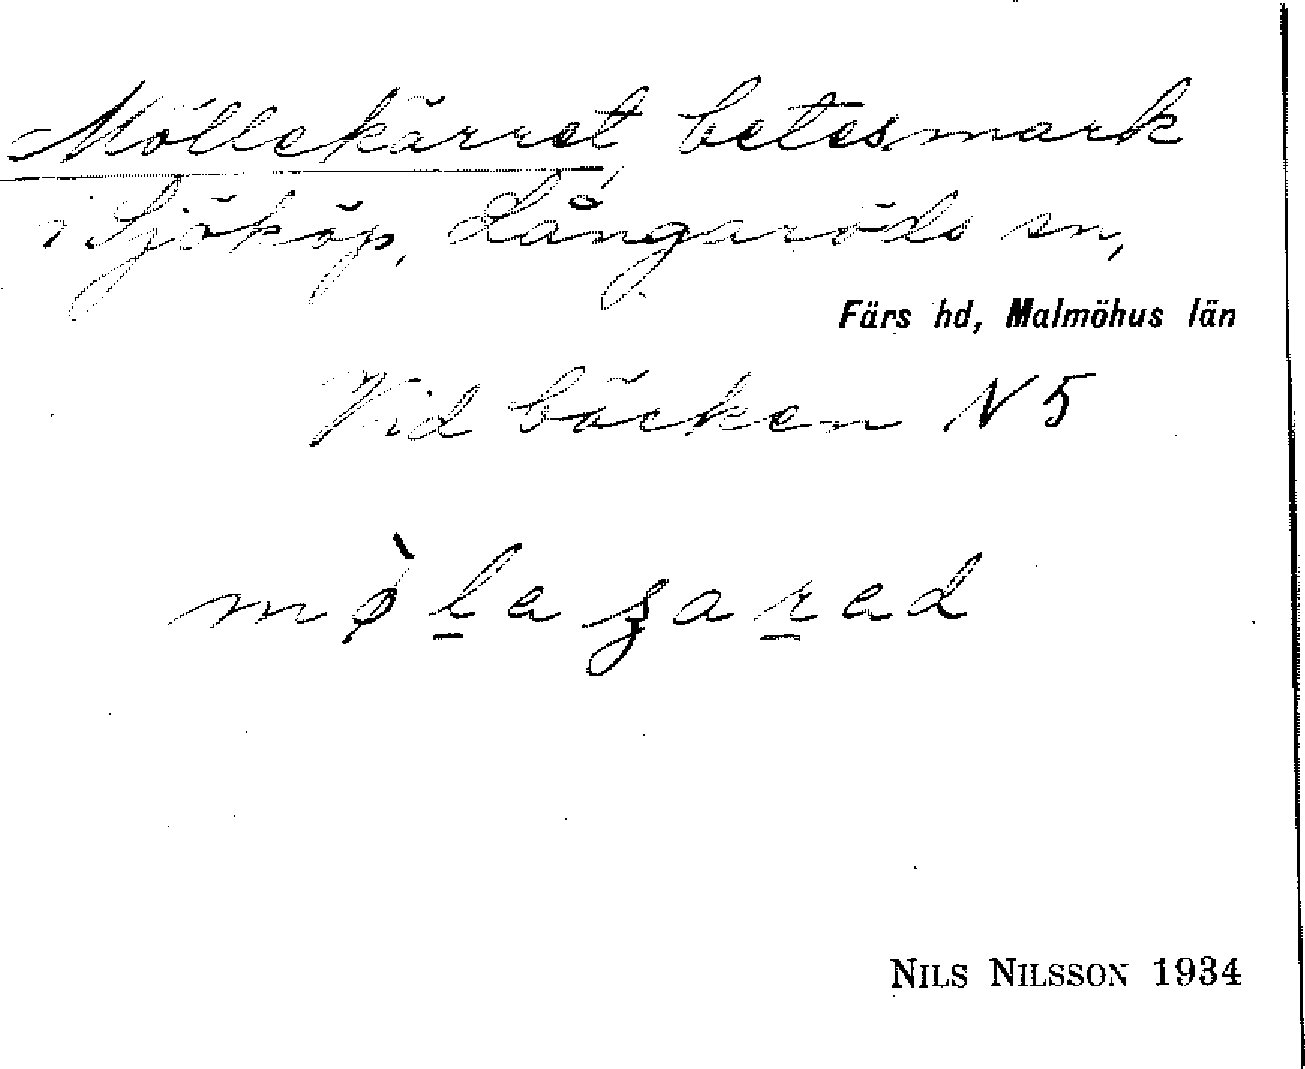 Möllekärret, betesmark
i Sjököp, Långaröds sn,
Färs hd, Malmöhus län
Vid bäcken N 5
NILS NILSSON 1934